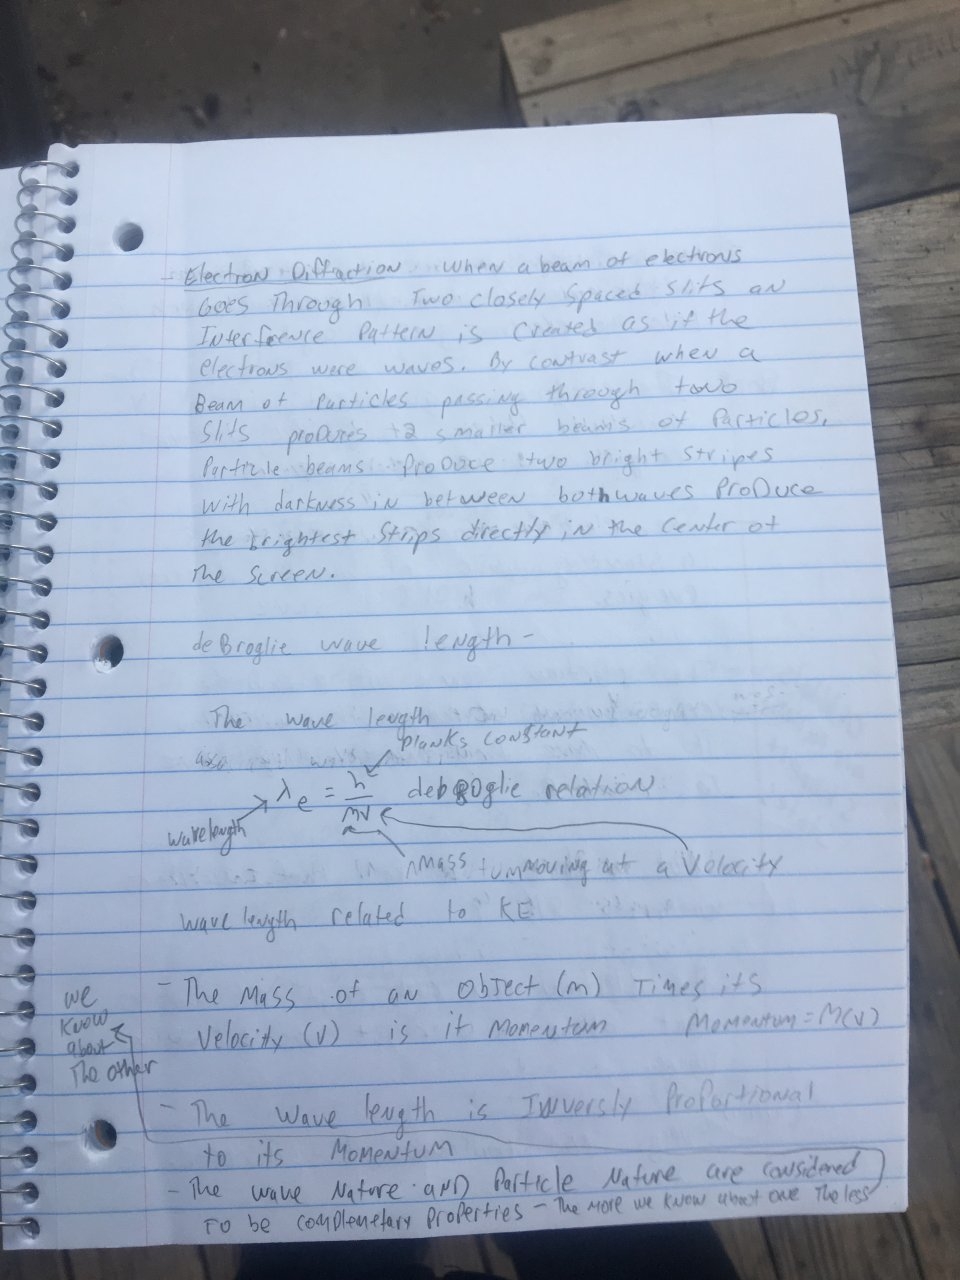 - Electron Diffraction when a beam of electrons
Goes Through Two closely spaced slits an
Interference Pattern is created as if the
electrons were waves. By contrast when a
Beam of Particles passing through two
Slits produres 2 smaller beams of Particles.
Particle beams Produce two bright stripes
with darkness in between both waves Produce
the brightest Strips directly in the center of
the screen.
deBroglie wave length -
The wave length
planks constant
λe = h/mv deBroglie relation
wavelength
Mass moving at a Volocity
wave length related to KE
- The Mass of an object (m) Times its
Velocity (v) is it Momentum Momentum = M(v)
- The wave length is Inversly Proportional
to its Momentum
- The wave Nature AND Particle Nature are considered
TO be complemetary properties - The more we know about one The less
we
know
about
The other